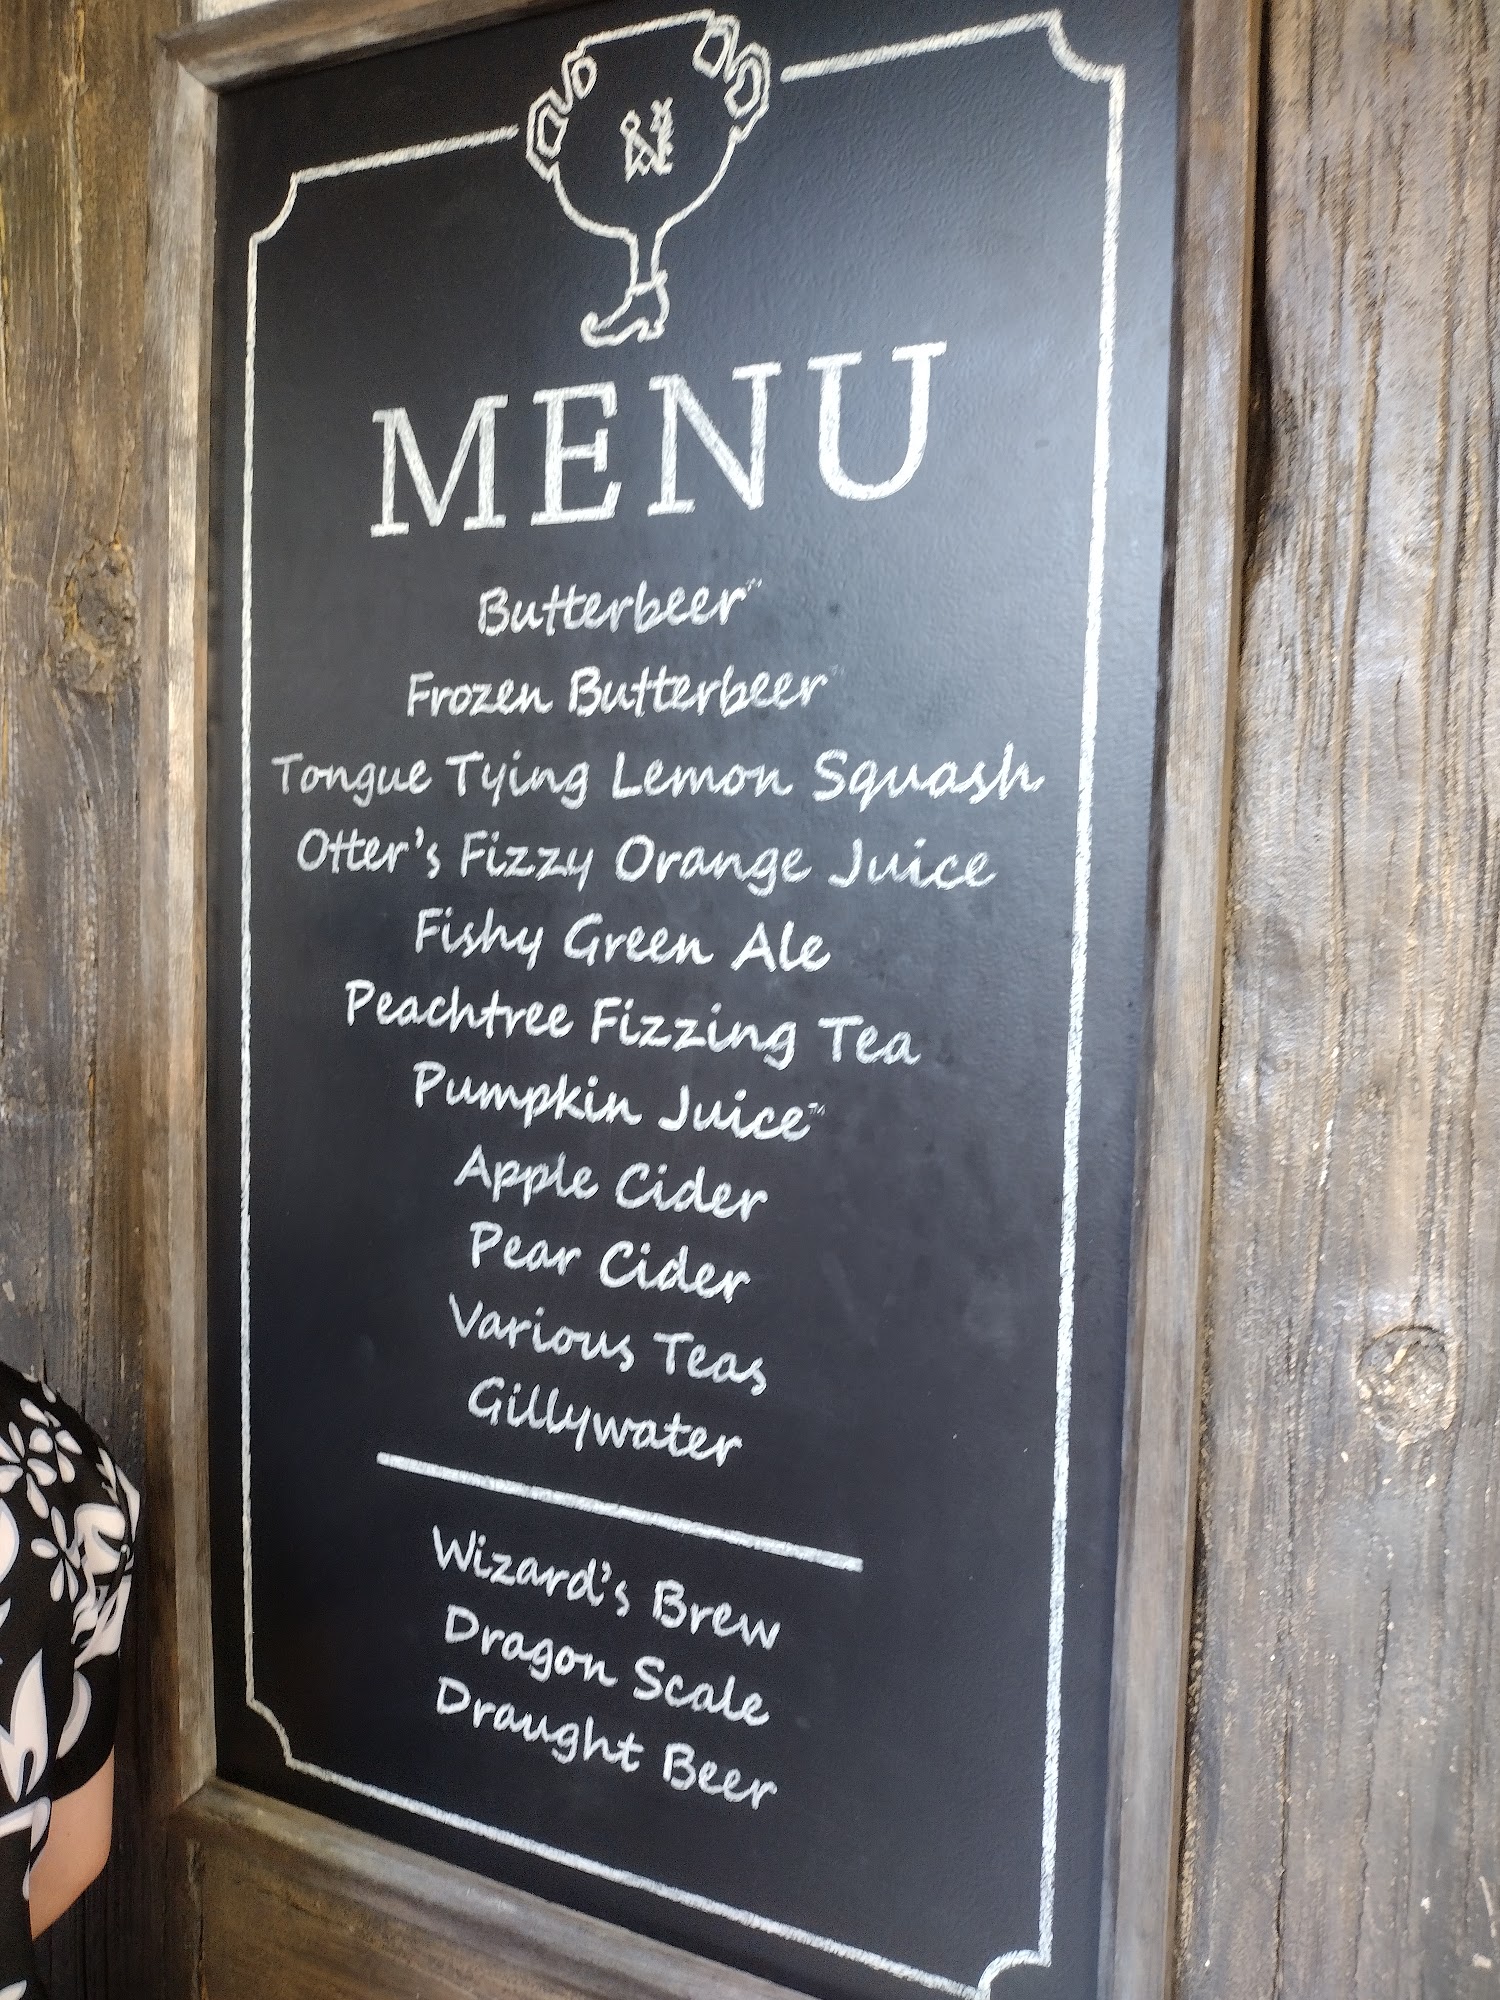 MENU
Butterbeer™
Frozen Butterbeer™
Tongue Tying Lemon Squash
Otter's Fizzy Orange Juice
Fishy Green Ale
Peachtree Fizzing Tea
Pumpkin Juice™
Apple Cider
Pear Cider
Various Teas
Gillywater
Wizard's Brew
Dragon Scale
Draught Beer